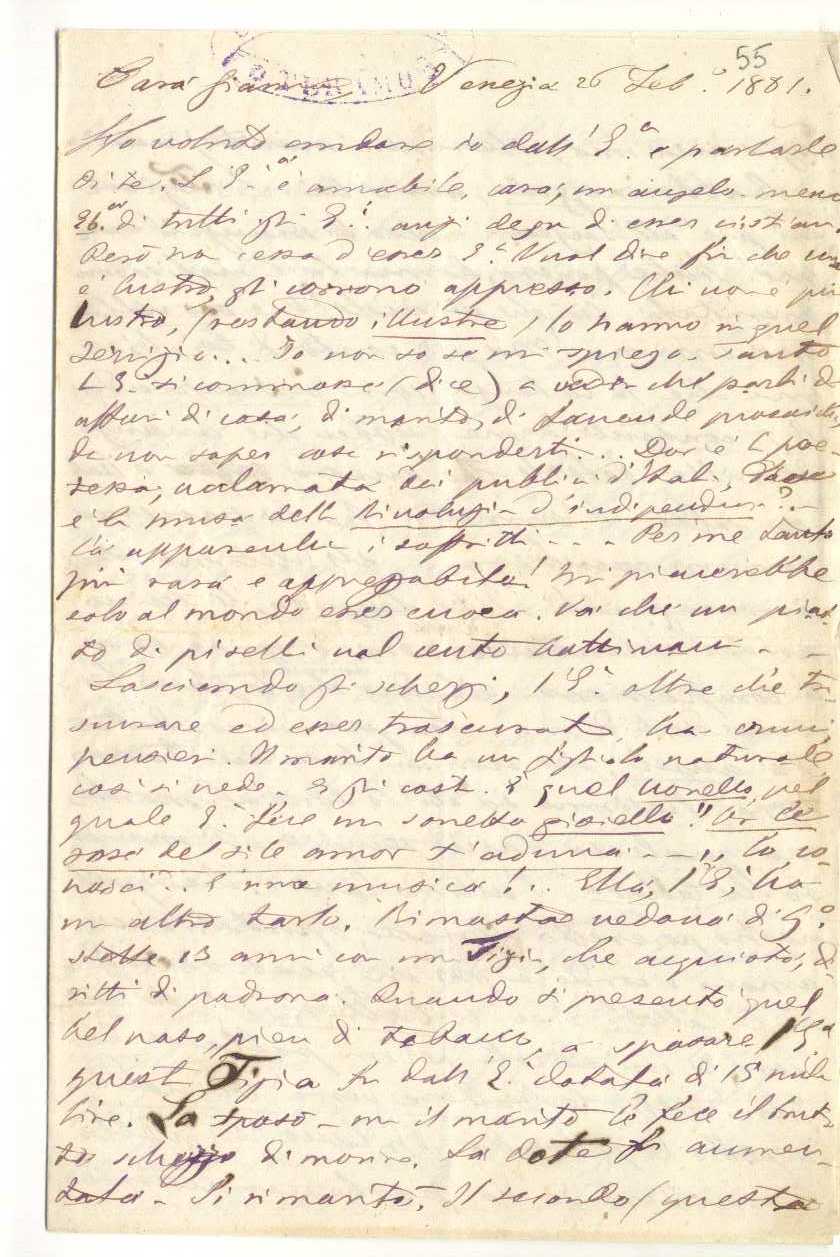 55
Cara Giann Venezia 26 Feb.° 1881.
Ho voluto andare io dall' E.a e parlarle
di te. L'E.a è amabile, cara; un angelo meno
di tutti gli E.i anzi degn di esser cristian.
Però non cessa d'esser E.a Vuol dire fin che uno
è lustro, gli corrono appresso. Chi non è più
lustro, (restando illustre) lo hanno in quel
servizio... Io non so se mi spiego. Tanto
L'E. si commosse (dice) a veder che parli di
affari di casa, di marito, di faccende prosaiche,
da non saper cosa risponderti... Dov'è la poe-
tessa, acclamata dai pubblici d'Italia, Dove
è la musa della Rivoluzion d'indipendenza?..
La apparecchia i soffritti... Per me tanto
più cara e apprezzabile! Mi piacerebbe
solo al mondo esser cuoca. Va che un piat-
to di piselli val cento
Lasciando gli scherzi, l'E.a oltre che tra-
scurare ed esser trascurata, ha
pensieri. Il marito ha un figliolo naturale
così si vede. E gli cost. È quel nonello, pel
quale E.a fece un sonetto gioiello!!
amor t'aduna - - ,, lo co-
nosci.. È una musica!.. Ella, l'E.a, ha
un altro tarlo. Rimasta vedova di G.°
stette 13 anni con un Tizia, che acquistò, di-
ritti di padrona. Quando si presentò quel
bel naso, pien di tabacco, a sposare l'E.a
questa Tizia fu dall'E.a dotata di 15 mila
lire. La sposò - ma il marito le fece il brut-
to scherzo di morire. La dote fu aumen-
tata - Si rimaritò. Il secondo (questa